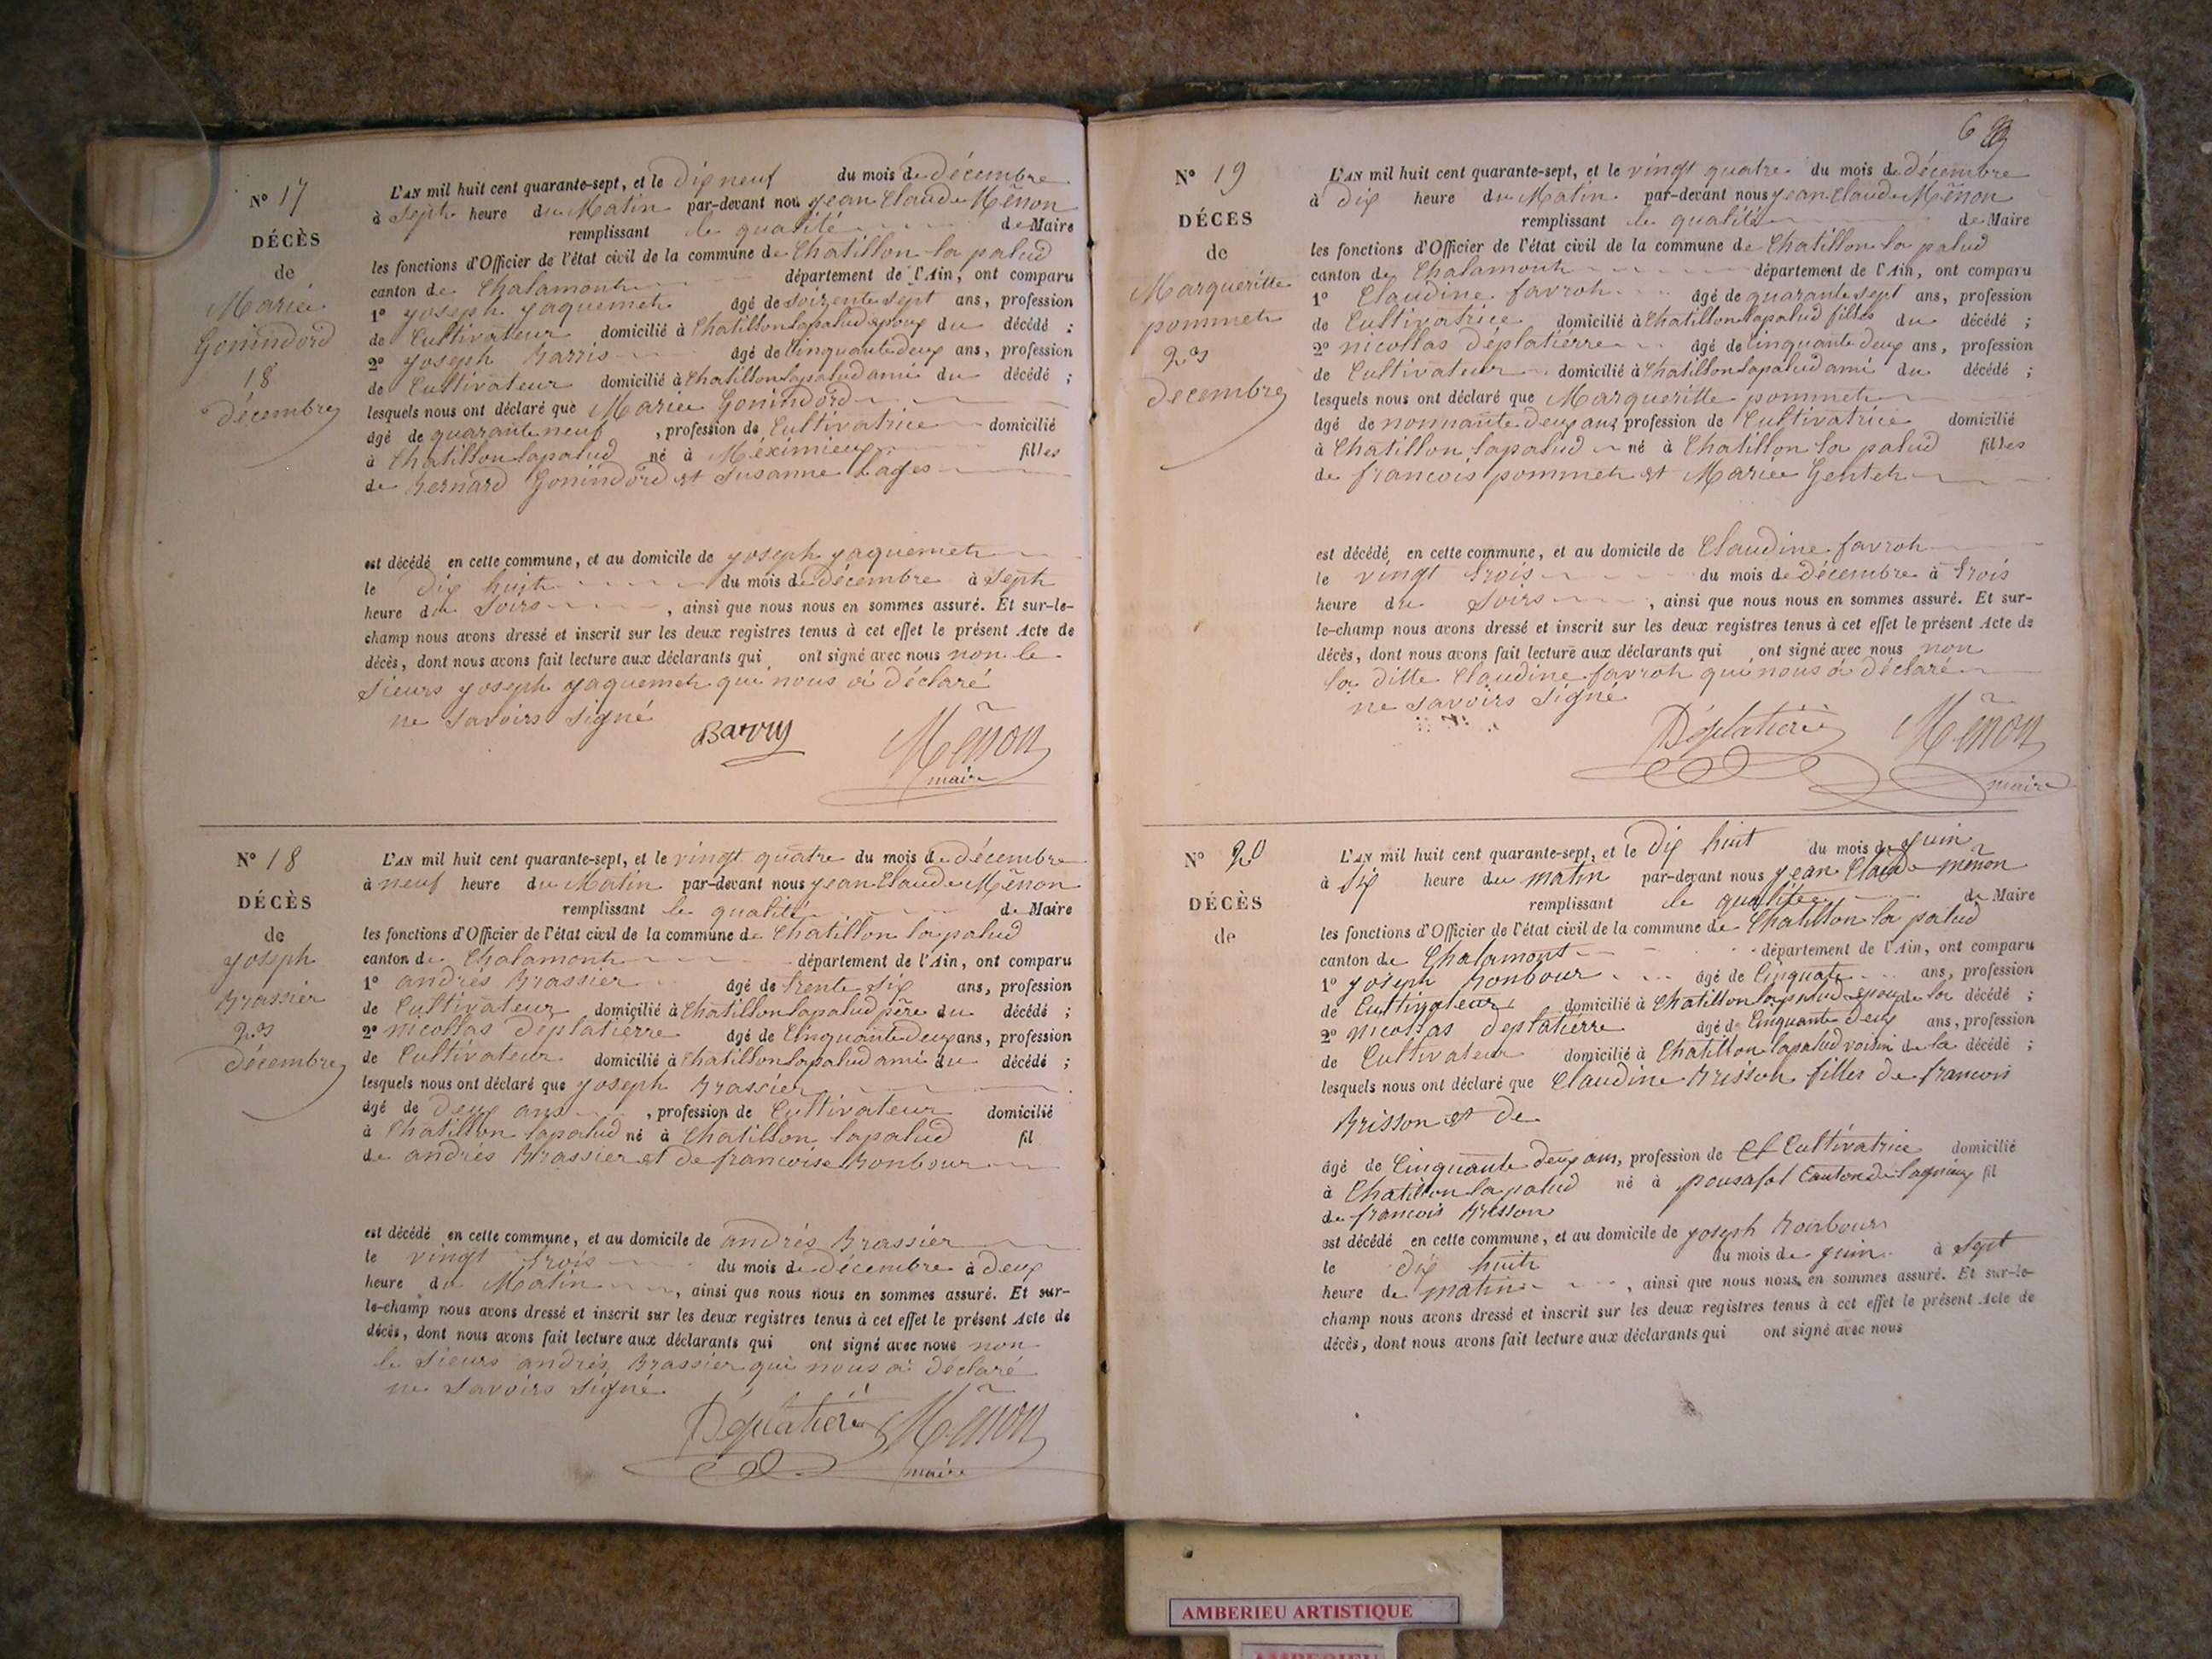 N° 17
DÉCÈS
de
Marie
Gonindord
18
décembre
L'AN mil huit cent quarante-sept, et le dix neuf du mois de décembre
à sept heure du Matin par-devant nou jean Claude Mēnon
remplissant le qualité de Maire
les fonctions d'Officier de l'état civil de la commune de Chatillon la palud
canton de Chalamont département de l'Ain, ont comparu
1° joseph jaquemet âgé de soixente sept ans, profession
de Cultivateur domicilié à Chatillon lapalud epoux du décédé ;
2° joseph Barris âgé de Cinquante deux ans, profession
de Cultivateur domicilié à Chatillon lapalud ami du décédé ;
lesquels nous ont déclaré que Marie Gonindord
âgé de quarante neuf , profession de Cultivatrice domicilié
à Chatillon lapalud né à Méximieux filles
de Bernard Gonindord et Susanne Lages
est décédé en cette commune, et au domicile de joseph jaquemet
le dix huit du mois de décembre à sept
heure du Soirs , ainsi que nous nous en sommes assuré. Et sur-le-
champ nous avons dressé et inscrit sur les deux registres tenus à cet effet le présent Acte de
décès, dont nous avons fait lecture aux déclarants qui ont signé avec nous non le
sieurs joseph jaquemet qui nous a déclaré
ne savoirs signé
Barry Mēnon
maire
N° 18
DÉCÈS
de
joseph
Brassier
23
décembre
L'AN mil huit cent quarante-sept, et le vingt quatre du mois de décembre
à neuf heure du Matin par-devant nous jean Claude Mēnon
remplissant le qualité de Maire
les fonctions d'Officier de l'état civil de la commune de Chatillon la palud
canton de Chalamont département de l'Ain, ont comparu
1° andrés Brassier âgé de trente six ans, profession
de Cultivateur domicilié à Chatillon lapalud père du décédé ;
2° nicollas déplatierre âgé de Cinquante deux ans, profession
de Cultivateur domicilié à Chatillon lapalud ami du décédé ;
lesquels nous ont déclaré que joseph Brassier
âgé de deux ans , profession de Cultivateur domicilié
à Chatillon lapalud né à Chatillon lapalud fil
de andrés Brassier et de francoise Bonbour
est décédé en cette commune, et au domicile de andrés Brassier
le vingt trois du mois de décembre à deux
heure du Matin , ainsi que nous nous en sommes assuré. Et sur-
le-champ nous avons dressé et inscrit sur les deux registres tenus à cet effet le présent Acte de
décès, dont nous avons fait lecture aux déclarants qui ont signé avec nous non
le sieurs andrés Brassier qui nous a déclaré
ne savoirs signé
Déplatière Mēnon
maire
6
N° 19
DÉCÈS
de
Margueritte
pommet
23
decembre
L'AN mil huit cent quarante-sept, et le vingt quatre du mois de décembre
à dix heure du Matin par-devant nous jean Claude Mēnon
remplissant le qualité de Maire
les fonctions d'Officier de l'état civil de la commune de Chatillon la palud
canton de Chalamont département de l'Ain, ont comparu
1° Claudine favrot âgé de quarante sept ans, profession
de Cultivatrice domicilié à Chatillon lapalud filles du décédé ;
2° nicollas déplatierre âgé de Cinquante deux ans, profession
de Cultivateur domicilié à Chatillon lapalud ami du décédé ;
lesquels nous ont déclaré que Margueritte pommet
âgé de nonnante deux ans profession de Cultivatrice domicilié
à Chatillon lapalud né à Chatillon la palud filles
de francois pommet et Marie Gentet
est décédé en cette commune, et au domicile de Claudine favrot
le vingt trois du mois de décembre à trois
heure du Soirs , ainsi que nous nous en sommes assuré. Et sur-
le-champ nous avons dressé et inscrit sur les deux registres tenus à cet effet le présent Acte de
décès, dont nous avons fait lecture aux déclarants qui ont signé avec nous non
la ditte Claudine favrot qui nous a déclaré
ne savoirs signé
Déplatière Mēnon
maire
N° 20
DÉCÈS
de
L'AN mil huit cent quarante-sept, et le dix huit du mois de juin
à dix heure du matin par-devant nous jean Claude mēnon
remplissant le qualitée de Maire
les fonctions d'Officier de l'état civil de la commune de Chatillon la palud
canton de Chalamont département de l'Ain, ont comparu
1° joseph Bonbour âgé de Cinquate ans, profession
de Cultivateur domicilié à Chatillon lapalud epoux de la décédé ;
2° nicollas deplatierre âgé de Cinquante deux ans, profession
de Cultivateur domicilié à Chatillon lapalud voisin de la décédé ;
lesquels nous ont déclaré que Claudine Brisson filles de francois
Brisson et de
âgé de Cinquante deux ans, profession de Cultivatrice domicilié
à Chatillon lapalud né à pousafol Canton de lagnieux fil
de francois Brisson
est décédé en cette commune, et au domicile de joseph Bonbour
le dix huit du mois de juin à sept
heure de matin , ainsi que nous nous en sommes assuré. Et sur-le-
champ nous avons dressé et inscrit sur les deux registres tenus à cet effet le présent Acte de
décès, dont nous avons fait lecture aux déclarants qui ont signé avec nous
AMBERIEU ARTISTIQUE
AMBERIEU